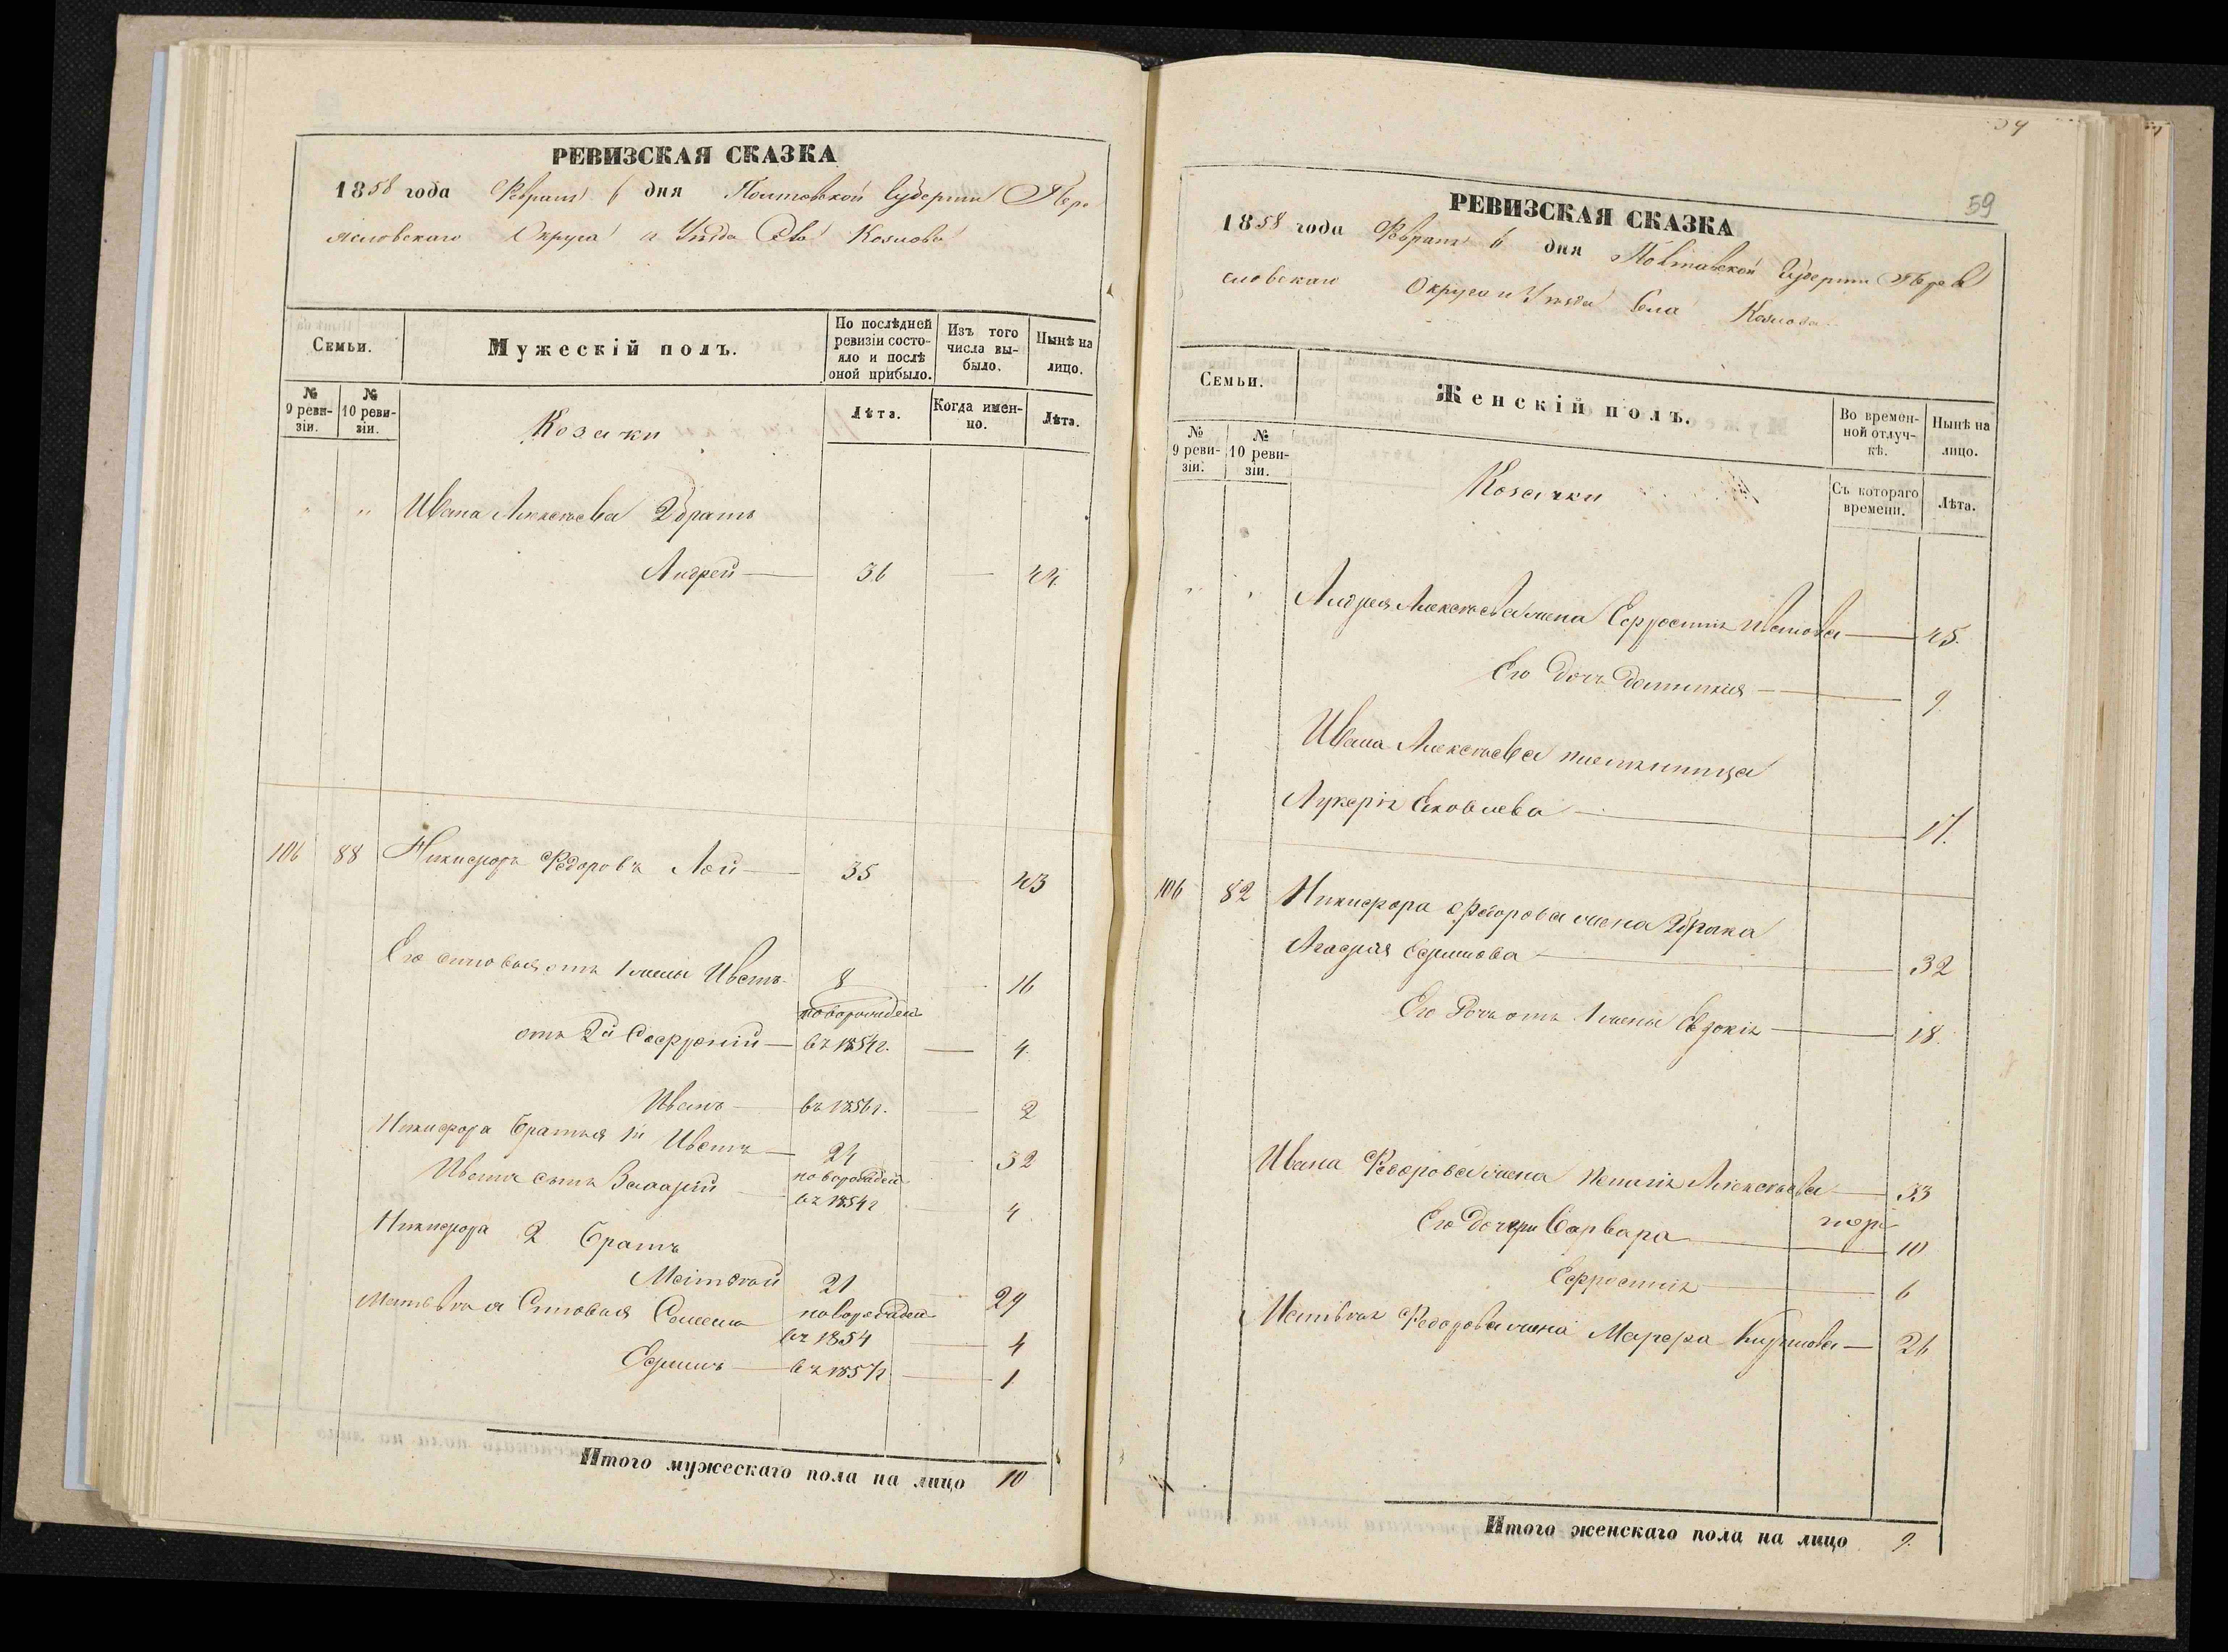 РЕВИЗСКАЯ СКАЗКА
1858 года Февраля 6 дня Полтавской Губернии Пере
яславскаго Округа и Уѣзда Села Козлова
Семьи.
Мужескій полъ.
По послѣдней ревизіи состояло и послѣ оной прибыло.
Изъ того числа выбыло.
Нынѣ на лицо.
№ 9 ревизіи.
№ 10 ревизіи.
Козаки
Лѣта.
Когда именно.
Лѣта.
" " Ивана Алексѣева 2 братъ
Андрей — 36 — 44.
106 88 Никифоръ Федоровъ — 35 — 43
Его сыновья отъ 1 жены Иванъ 8 16
новорожден
отъ 2й Софроній — въ 1854 г. — 4.
Иванъ — въ 1856 г. — 2
Никифора братья 1й Иванъ — 24 32
новорожден
Ивана сынъ въ 1854 г 4.
Никифора 2 братъ
Матвѣй 21 29
Матвѣя Сыновья Семенъ новорожден
въ 1854 — 4
Ефимъ — въ 1857 г — 1
Итого мужескаго пола на лицо 10
59
РЕВИЗСКАЯ СКАЗКА
1858 года Февраля 6 дня Полтавской Губернии Перея
славскаго Округа и Уѣзда Села Козлова
Семьи.
Женскій полъ.
Во временной отлучкѣ.
Нынѣ на лицо.
№ 9 ревизіи.
№ 10 ревизіи.
Козачки
Съ котораго времени.
Лѣта.
Андрея Алексѣева жена Ефросинія Иванова — 45.
Его дочь Домникія — 9.
Ивана Алексѣева племянница
Лукерія Яковлева — 17.
106 82 Никифора Федорова жена 2 брака
Агафія Ефимова — 32
Его дочь отъ 1 жены Евдокія — 18.
Ивана Федорова жена Пелагія Алексѣева — 33
Его дочери Варвара — 10
Ефросинія — 6
Матвѣя Федорова жена Марфа — 26
Итого женскаго пола на лицо 9.